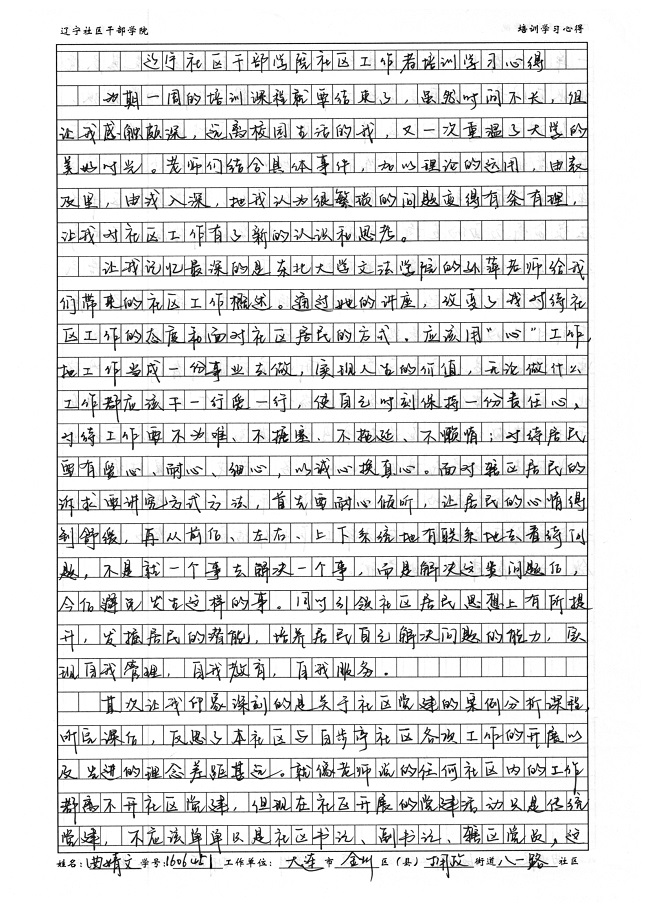 辽宁社区干部学院 培训学习心得
辽宁社区干部学院社区工作者培训学习心得
为期一周的培训课程就要结束了，虽然时间不长，但
让我感触颇深，远离校园生活的我，又一次重温了大学的
美好时光。老师们结合具体事件，加以理论的运用，由表
及里，由浅入深，把我认为很繁琐的问题变得有条有理，
让我对社区工作有了新的认识和思考。
让我记忆最深的是东北大学文法学院的孙萍老师给我
们带来的社区工作概述。通过她的讲座，改变了我对待社
区工作的态度和面对社区居民的方式。应该用“心”工作，
把工作当成一份事业去做，实现人生的价值，无论做什么
工作都应该干一行爱一行，使自己时刻保持一份责任心，
对待工作要不为难、不搪塞、不拖延、不懒惰；对待居民
要有爱心、耐心、细心，以诚心换真心。面对辖区居民的
诉求要讲究方式方法，首先要耐心倾听，让居民的心情得
到舒缓，再从前后、左右、上下系统地有联系地去看待问
题，不是就一个事去解决一个事，而是解决这类问题后，
今后避免发生这样的事。同时引领社区居民思想上有所提
升，发掘居民的潜能，培养居民自己解决问题的能力，实
现自我管理，自我教育，自我服务。
其次让我印象深刻的是关于社区党建的案例分析课程，
听完课后，反思了本社区与百步亭社区各项工作的开展以
及先进的理念差距甚远。就像老师说的任何社区内的工作
都离不开社区党建，但现在社区开展的党建活动只是传统
党建，不应该单单只是社区书记、副书记、辖区党员，这
姓名：曲婧文 学号：1606451 工作单位：大连 市 金州 区（县） 拥政 街道 八一路 社区